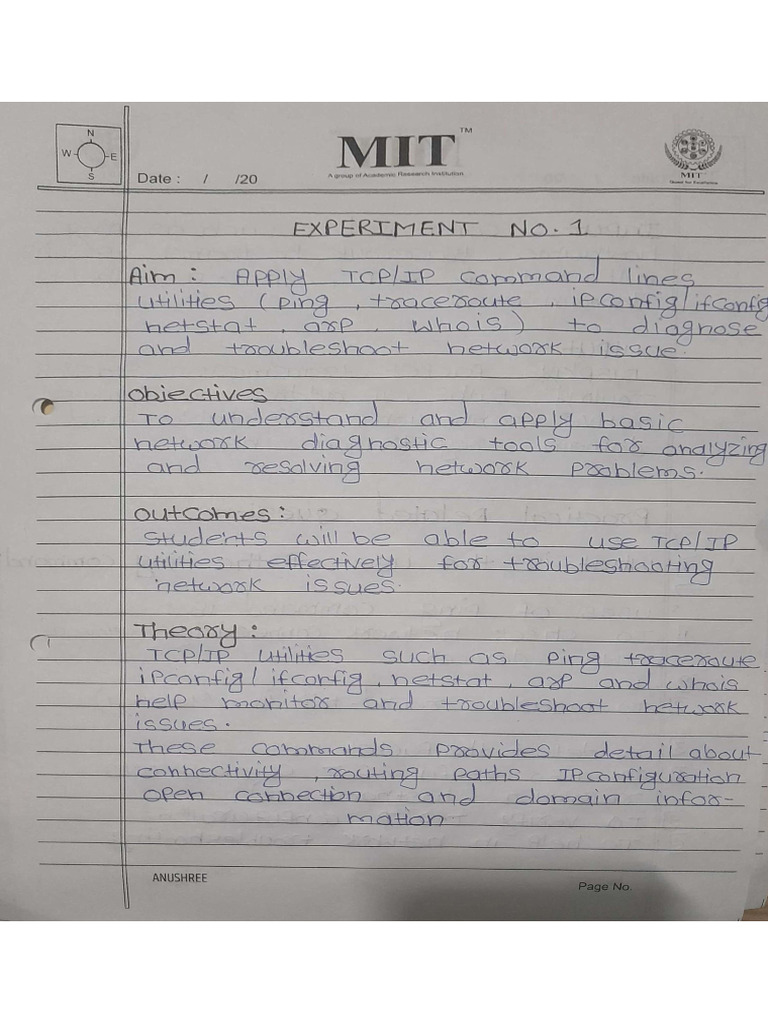 N
W E
S
Date : / /20
MIT TM
A group of Academic Research Institution
MIT
Quest for Excellence
EXPERIMENT NO. 1
Aim : Apply TCP/IP command lines
utilities (ping , traceroute , ipconfig/ifconfig
netstat , arp , whois) to diagnose
and troubleshoot network issue.
Objectives
To understand and apply basic
network diagnostic tools for analyzing
and resolving network problems.
Outcomes :
Students will be able to use TCP/IP
utilities effectively for troubleshooting
network issues.
Theory :
TCP/IP utilities such as ping traceroute
ipconfig/ ifconfig , netstat , arp and whois
help monitor and troubleshoot network
issues.
These commands provides detail about
connectivity , routing paths IPconfiguration
open connection and domain infor-
mation.
ANUSHREE
Page No.